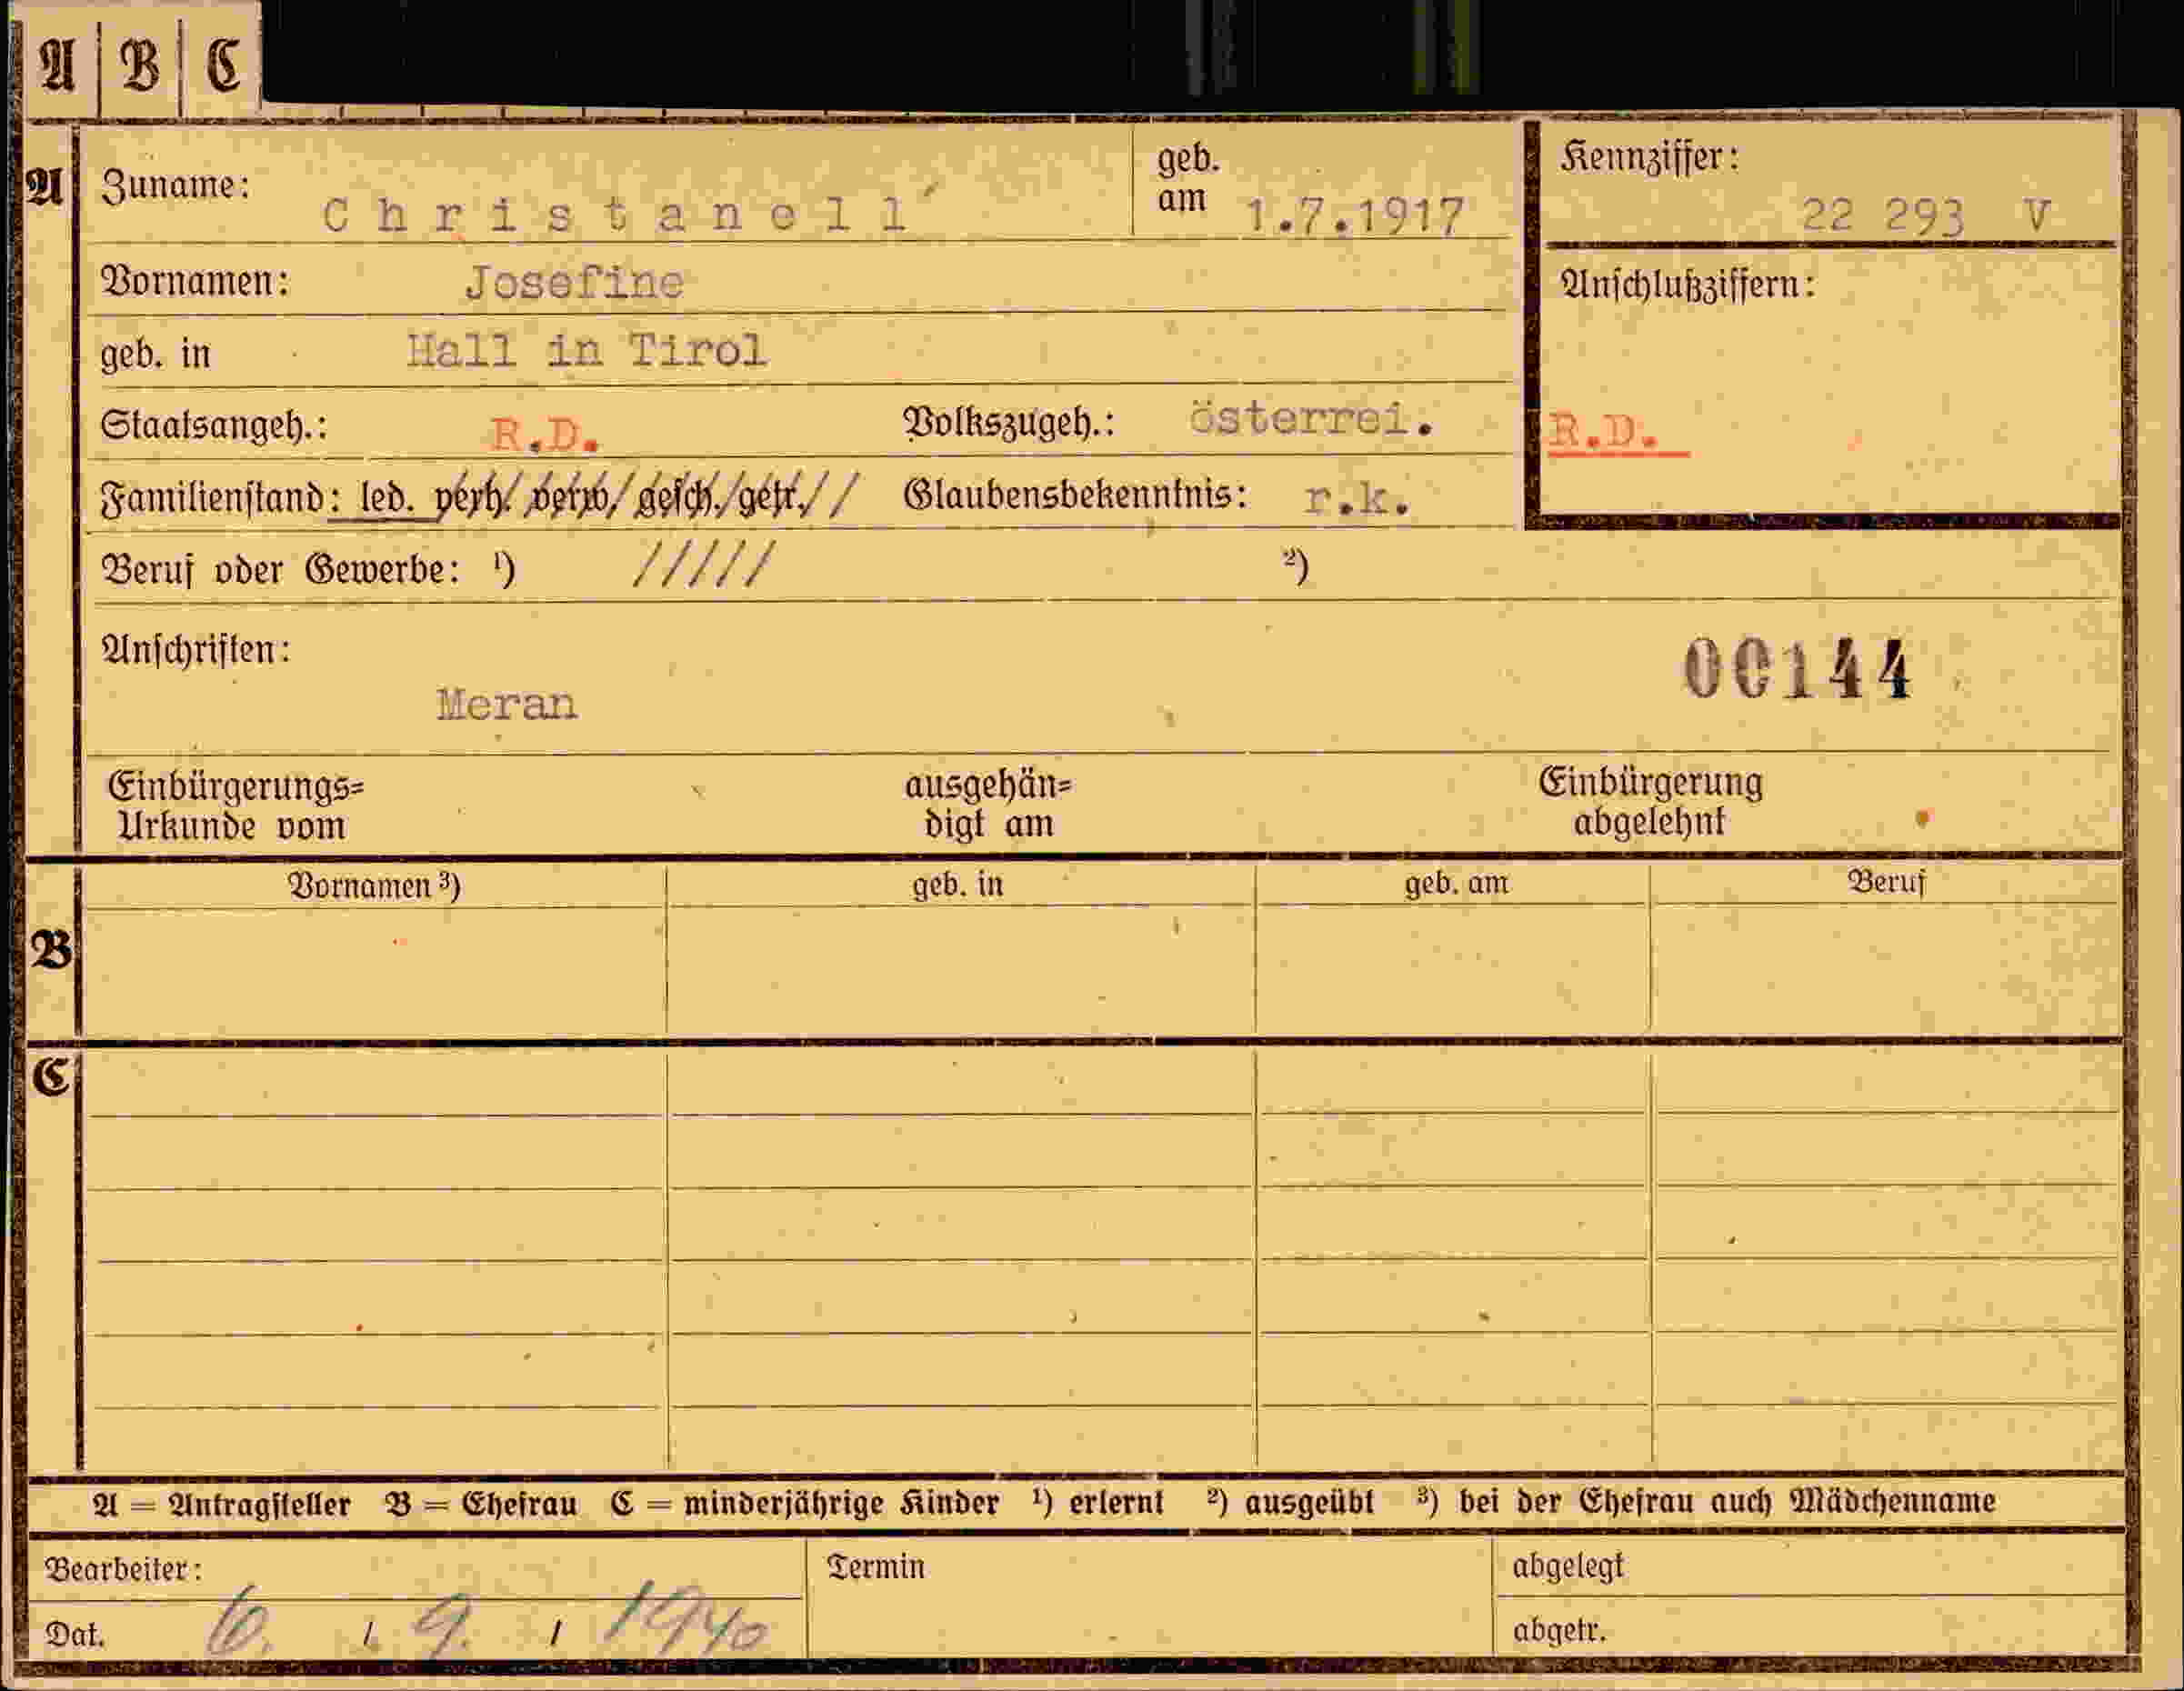 A B C
A Zuname: Christanell geb. am 1.7.1917 Kennziffer: 22 293 V
Vornamen: Josefine Anschlußziffern:
geb. in Hall in Tirol
Staatsangeh.: R.D. Volkszugeh.: österrei. R.D.
Familienstand: led. verh. verw. gesch. getr. // Glaubensbekenntnis: r.k.
Beruf oder Gewerbe: ¹) ///// ²)
Anschriften: 00144
Meran
Einbürgerungs= ausgehän= Einbürgerung
Urkunde vom digt am abgelehnt
Vornamen ³) geb. in geb. am Beruf
B
C
A = Antragsteller B = Ehefrau C = minderjährige Kinder ¹) erlernt ²) ausgeübt ³) bei der Ehefrau auch Mädchenname
Bearbeiter: Termin abgelegt
Dat. 6. / 9. / 1940 abgetr.